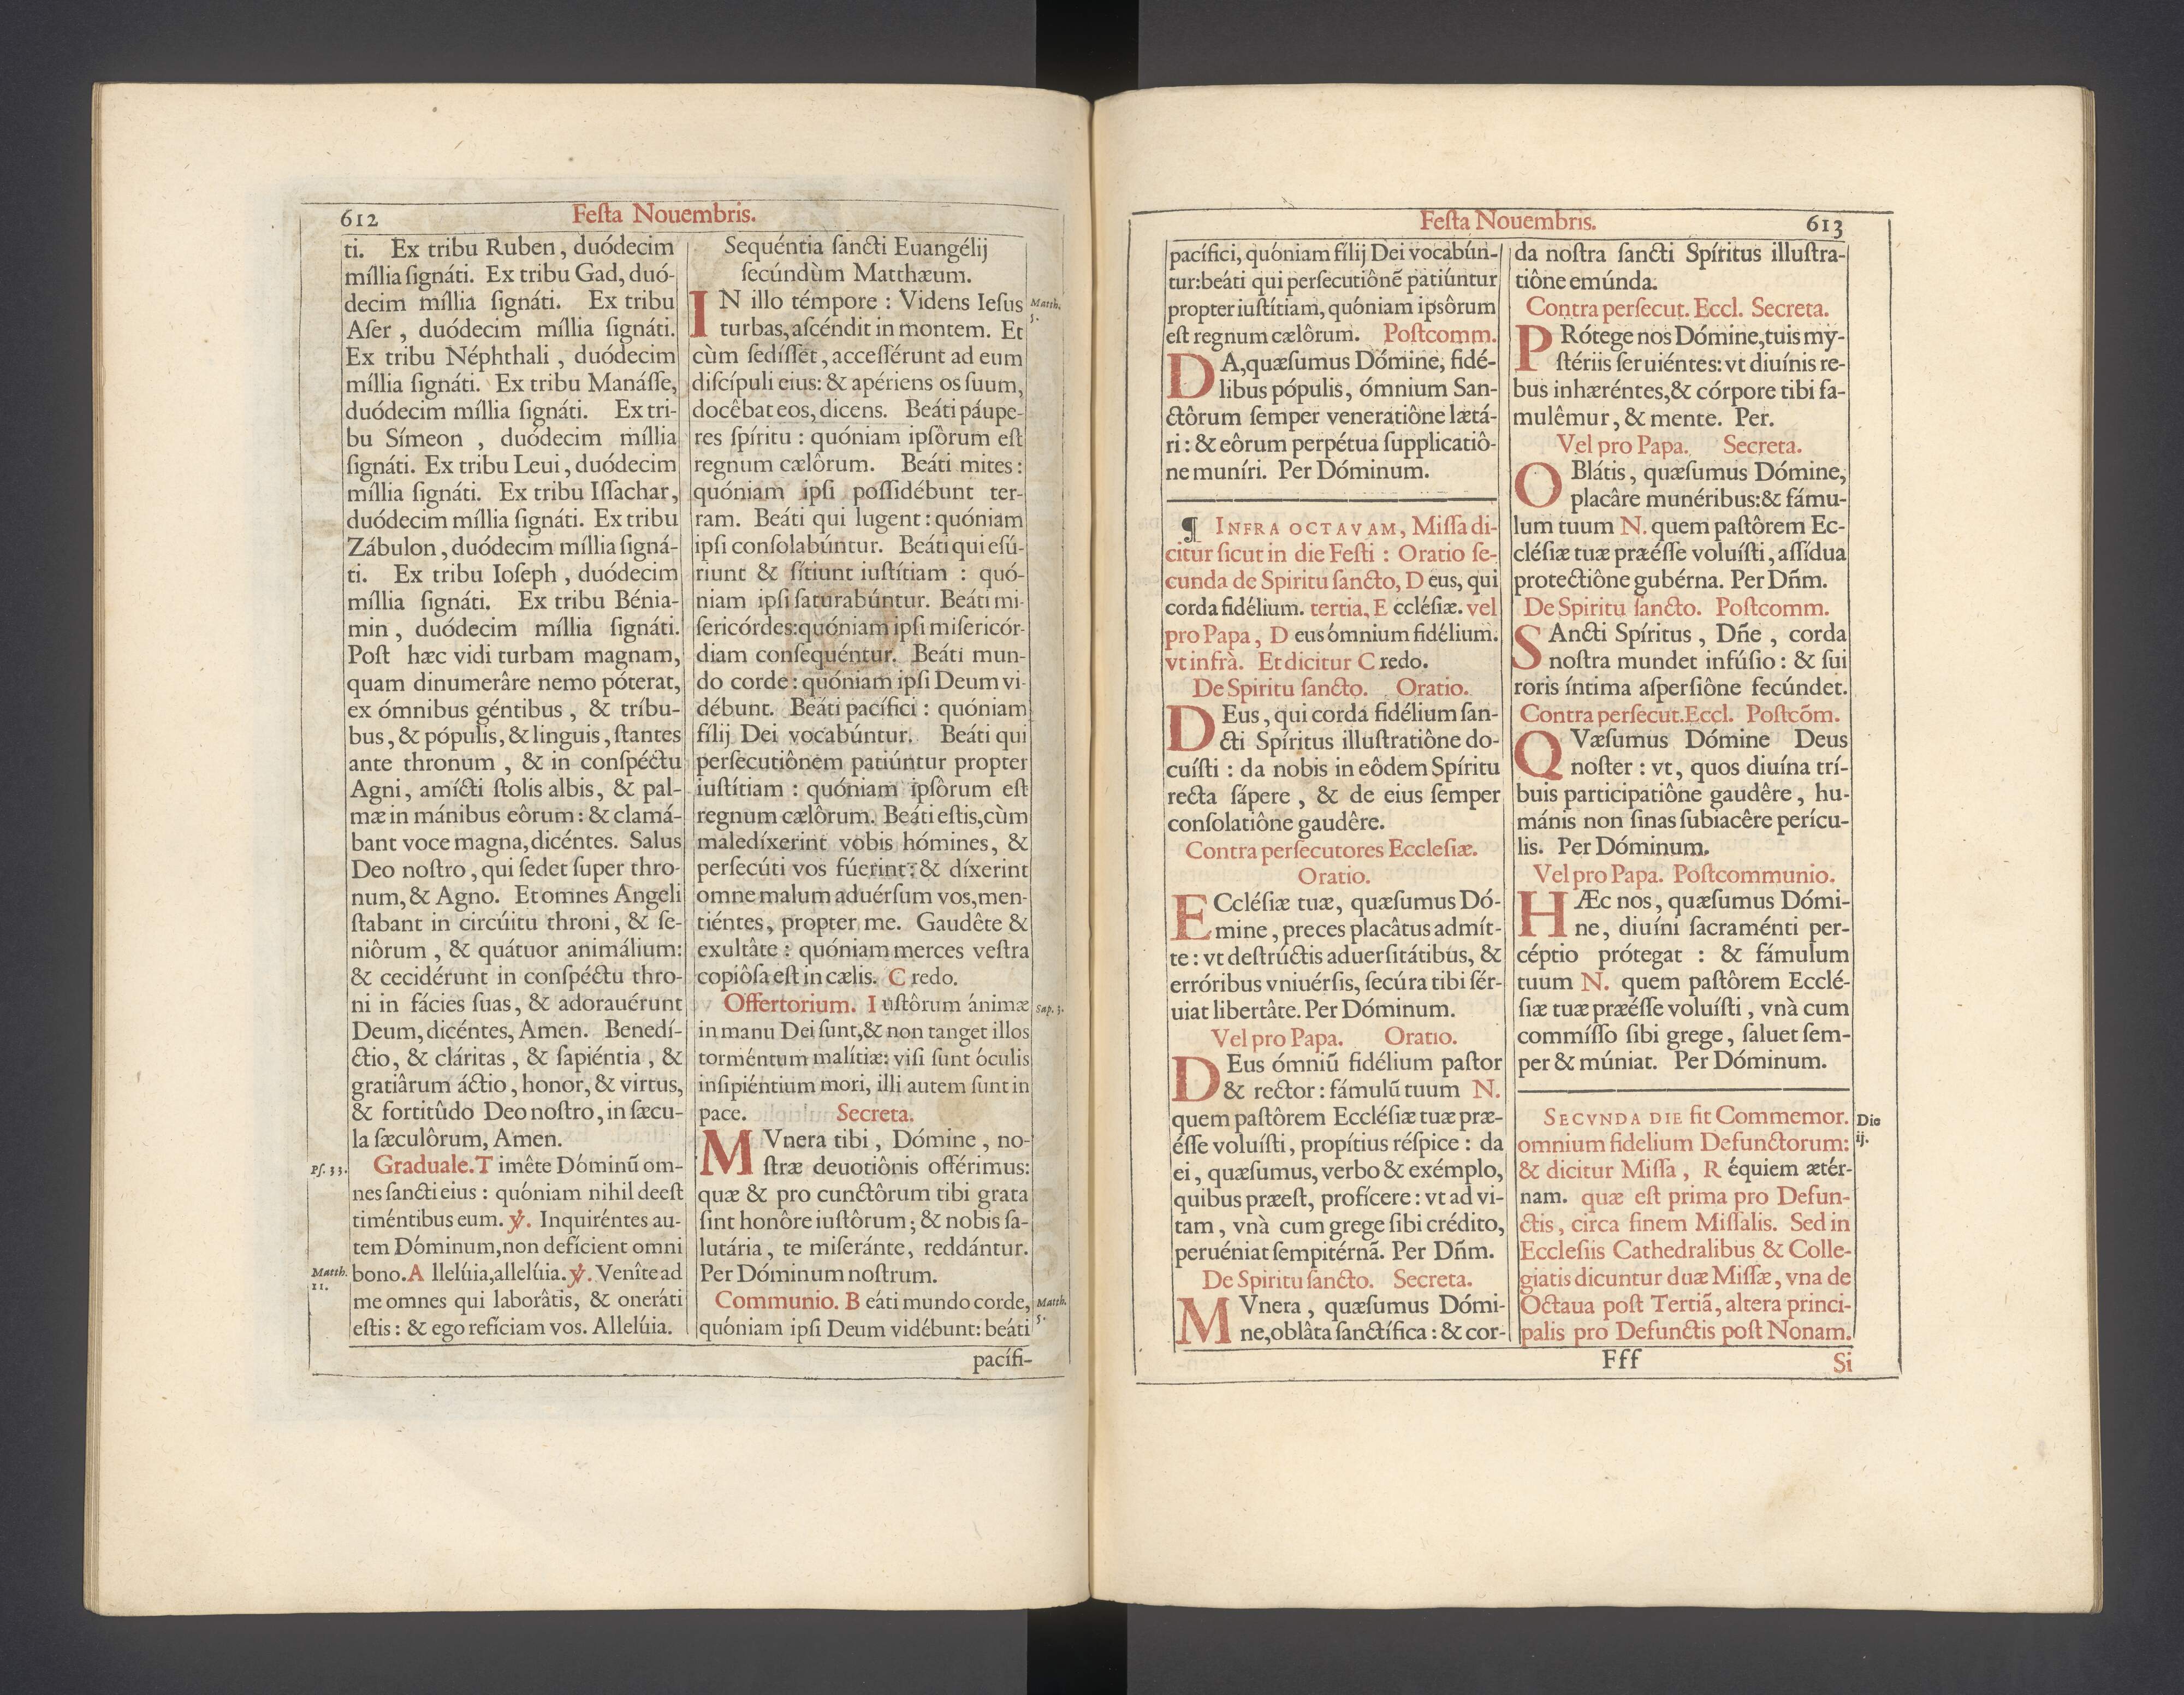 612
Feſta Nouembris.
ti. Ex tribu Ruben, duódecim
míllia ſignáti. Ex tribu Gad, duó-
decim míllia ſignáti. Ex tribu
Aſer, duódecim míllia ſignáti.
Ex tribu Néphthali, duódecim
míllia ſignáti. Ex tribu Manáſſe,
duódecim míllia ſignáti. Ex tri-
bu Símeon, duódecim míllia
ſignáti. Ex tribu Leui, duódecim
míllia ſignáti. Ex tribu Iſſachar,
duódecim míllia ſignáti. Ex tribu
Zábulon, duódecim míllia ſigná-
ti. Ex tribu Ioſeph, duódecim
míllia ſignáti. Ex tribu Bénia-
min, duódecim míllia ſignáti.
Poſt hæc vidi turbam magnam,
quam dinumerâre nemo póterat,
ex ómnibus géntibus, & tríbu-
bus, & pópulis, & linguis, ſtantes
ante thronum, & in conſpéctu
Agni, amícti ſtolis albis, & pal-
mæ in mánibus eôrum: & clamá-
bant voce magna, dicéntes. Salus
Deo noſtro, qui ſedet ſuper thro-
num, & Agno. Et omnes Angeli
ſtabant in circúitu throni, & ſe-
niôrum, & quátuor animálium:
& cecidérunt in conſpéctu thro-
ni in fácies ſuas, & adorauérunt
Deum, dicéntes, Amen. Benedí-
ctio, & cláritas, & ſapiéntia, &
gratiârum áctio, honor, & virtus,
& fortitûdo Deo noſtro, in ſæcu-
la ſæculôrum, Amen.
Pſ. 33.
Graduale. T imête Dóminũ om-
nes ſancti eius: quóniam nihil deeſt
timéntibus eum. ℣. Inquiréntes au-
tem Dóminum, non defícient omni
Matth.
11.
bono. A llelúia, allelúia. ℣. Venîte ad
me omnes qui laborâtis, & oneráti
eſtis: & ego refíciam vos. Allelúia.
Sequéntia ſancti Euangélij
ſecúndùm Matthæum.
IN illo témpore: Videns Ieſus
Matth.
5.
turbas, aſcéndit in montem. Et
cùm ſedíſſet, acceſſérunt ad eum
diſcípuli eius: & apériens os ſuum,
docêbat eos, dicens. Beáti páupe-
res ſpíritu: quóniam ipſôrum eſt
regnum cælôrum. Beáti mites:
quóniam ipſi poſſidébunt ter-
ram. Beáti qui lugent: quóniam
ipſi conſolabúntur. Beáti qui eſú-
riunt & ſítiunt iuſtítiam: quó-
niam ipſi ſaturabúntur. Beáti mi-
ſericórdes: quóniam ipſi miſericór-
diam conſequéntur. Beáti mun-
do corde: quóniam ipſi Deum vi-
débunt. Beáti pacífici: quóniam
fílij Dei vocabúntur. Beáti qui
perſecutiônem patiúntur propter
iuſtítiam: quóniam ipſôrum eſt
regnum cælôrum. Beáti eſtis, cùm
maledíxerint vobis hómines, &
perſecúti vos fúerint: & díxerint
omne malum aduérſum vos, men-
tiéntes, propter me. Gaudête &
exultâte: quóniam merces veſtra
copiôſa eſt in cælis. C redo.
Offertorium. I uſtôrum ánimæ
Sap. 3.
in manu Dei ſunt, & non tanget illos
torméntum malítiæ: viſi ſunt óculis
inſipiéntium mori, illi autem ſunt in
pace. Secreta.
MVnera tibi, Dómine, no-
ſtræ deuotiônis offérimus:
quæ & pro cunctôrum tibi grata
ſint honôre iuſtôrum; & nobis ſa-
lutária, te miſeránte, reddántur.
Per Dóminum noſtrum.
Communio. B eáti mundo corde,
Matth.
5.
quóniam ipſi Deum vidébunt: beáti
pacífi-
Feſta Nouembris.
613
pacífici, quóniam fílij Dei vocabún-
tur: beáti qui perſecutiônẽ patiúntur
propter iuſtítiam, quóniam ipsôrum
eſt regnum cælôrum. Poſtcomm.
DA, quæſumus Dómine, fidé-
libus pópulis, ómnium San-
ctôrum ſemper veneratiône lætá-
ri: & eôrum perpétua ſupplicatiô-
ne muníri. Per Dóminum.
¶ INFRA OCTAVAM, Miſſa di-
citur ſicut in die Feſti: Oratio ſe-
cunda de Spiritu ſancto, D eus, qui
corda fidélium. tertia, E ccléſiæ. vel
pro Papa, D eus ómnium fidélium.
vt infrà. Et dicitur C redo.
De Spiritu ſancto. Oratio.
DEus, qui corda fidélium ſan-
cti Spíritus illuſtratiône do-
cuíſti: da nobis in eôdem Spíritu
recta ſápere, & de eius ſemper
conſolatiône gaudêre.
Contra perſecutores Eccleſiæ.
Oratio.
ECcléſiæ tuæ, quæſumus Dó-
mine, preces placâtus admít-
te: vt deſtrúctis aduerſitátibus, &
erróribus vniuérſis, ſecúra tibi ſér-
uiat libertâte. Per Dóminum.
Vel pro Papa. Oratio.
DEus ómniũ fidélium paſtor
& rector: fámulũ tuum N.
quem paſtôrem Eccléſiæ tuæ præ-
éſſe voluíſti, propítius réſpice: da
ei, quæſumus, verbo & exémplo,
quibus præeſt, profícere: vt ad vi-
tam, vnà cum grege ſibi crédito,
peruéniat ſempitérnã. Per Dñm.
De Spiritu ſancto. Secreta.
MVnera, quæſumus Dómi-
ne, oblâta ſanctífica: & cor-
da noſtra ſancti Spíritus illuſtra-
tiône emúnda.
Contra perſecut. Eccl. Secreta.
PRótege nos Dómine, tuis my-
ſtériis ſeruiéntes: vt diuínis re-
bus inhæréntes, & córpore tibi fa-
mulêmur, & mente. Per.
Vel pro Papa. Secreta.
OBlátis, quæſumus Dómine,
placâre munéribus: & fámu-
lum tuum N. quem paſtôrem Ec-
cléſiæ tuæ præéſſe voluíſti, aſſídua
protectiône gubérna. Per Dñm.
De Spiritu ſancto. Poſtcomm.
SAncti Spíritus, Dñe, corda
noſtra mundet infúſio: & ſui
roris íntima aſperſiône fecúndet.
Contra perſecut. Eccl. Poſtcõm.
QVæſumus Dómine Deus
noſter: vt, quos diuína trí-
buis participatiône gaudêre, hu-
mánis non ſinas ſubiacêre perícu-
lis. Per Dóminum.
Vel pro Papa. Poſtcommunio.
HÆc nos, quæſumus Dómi-
ne, diuíni ſacraménti per-
céptio prótegat: & fámulum
tuum N. quem paſtôrem Ecclé-
ſiæ tuæ præéſſe voluíſti, vnà cum
commíſſo ſibi grege, ſaluet ſem-
per & múniat. Per Dóminum.
SECVNDA DIE fit Commemor.
Die
ij.
omnium fidelium Defunctorum:
& dicitur Miſſa, R équiem ætér-
nam. quæ eſt prima pro Defun-
ctis, circa finem Miſſalis. Sed in
Eccleſiis Cathedralibus & Colle-
giatis dicuntur duæ Miſſæ, vna de
Octaua poſt Tertiã, altera princi-
palis pro Defunctis poſt Nonam.
Fff
Si